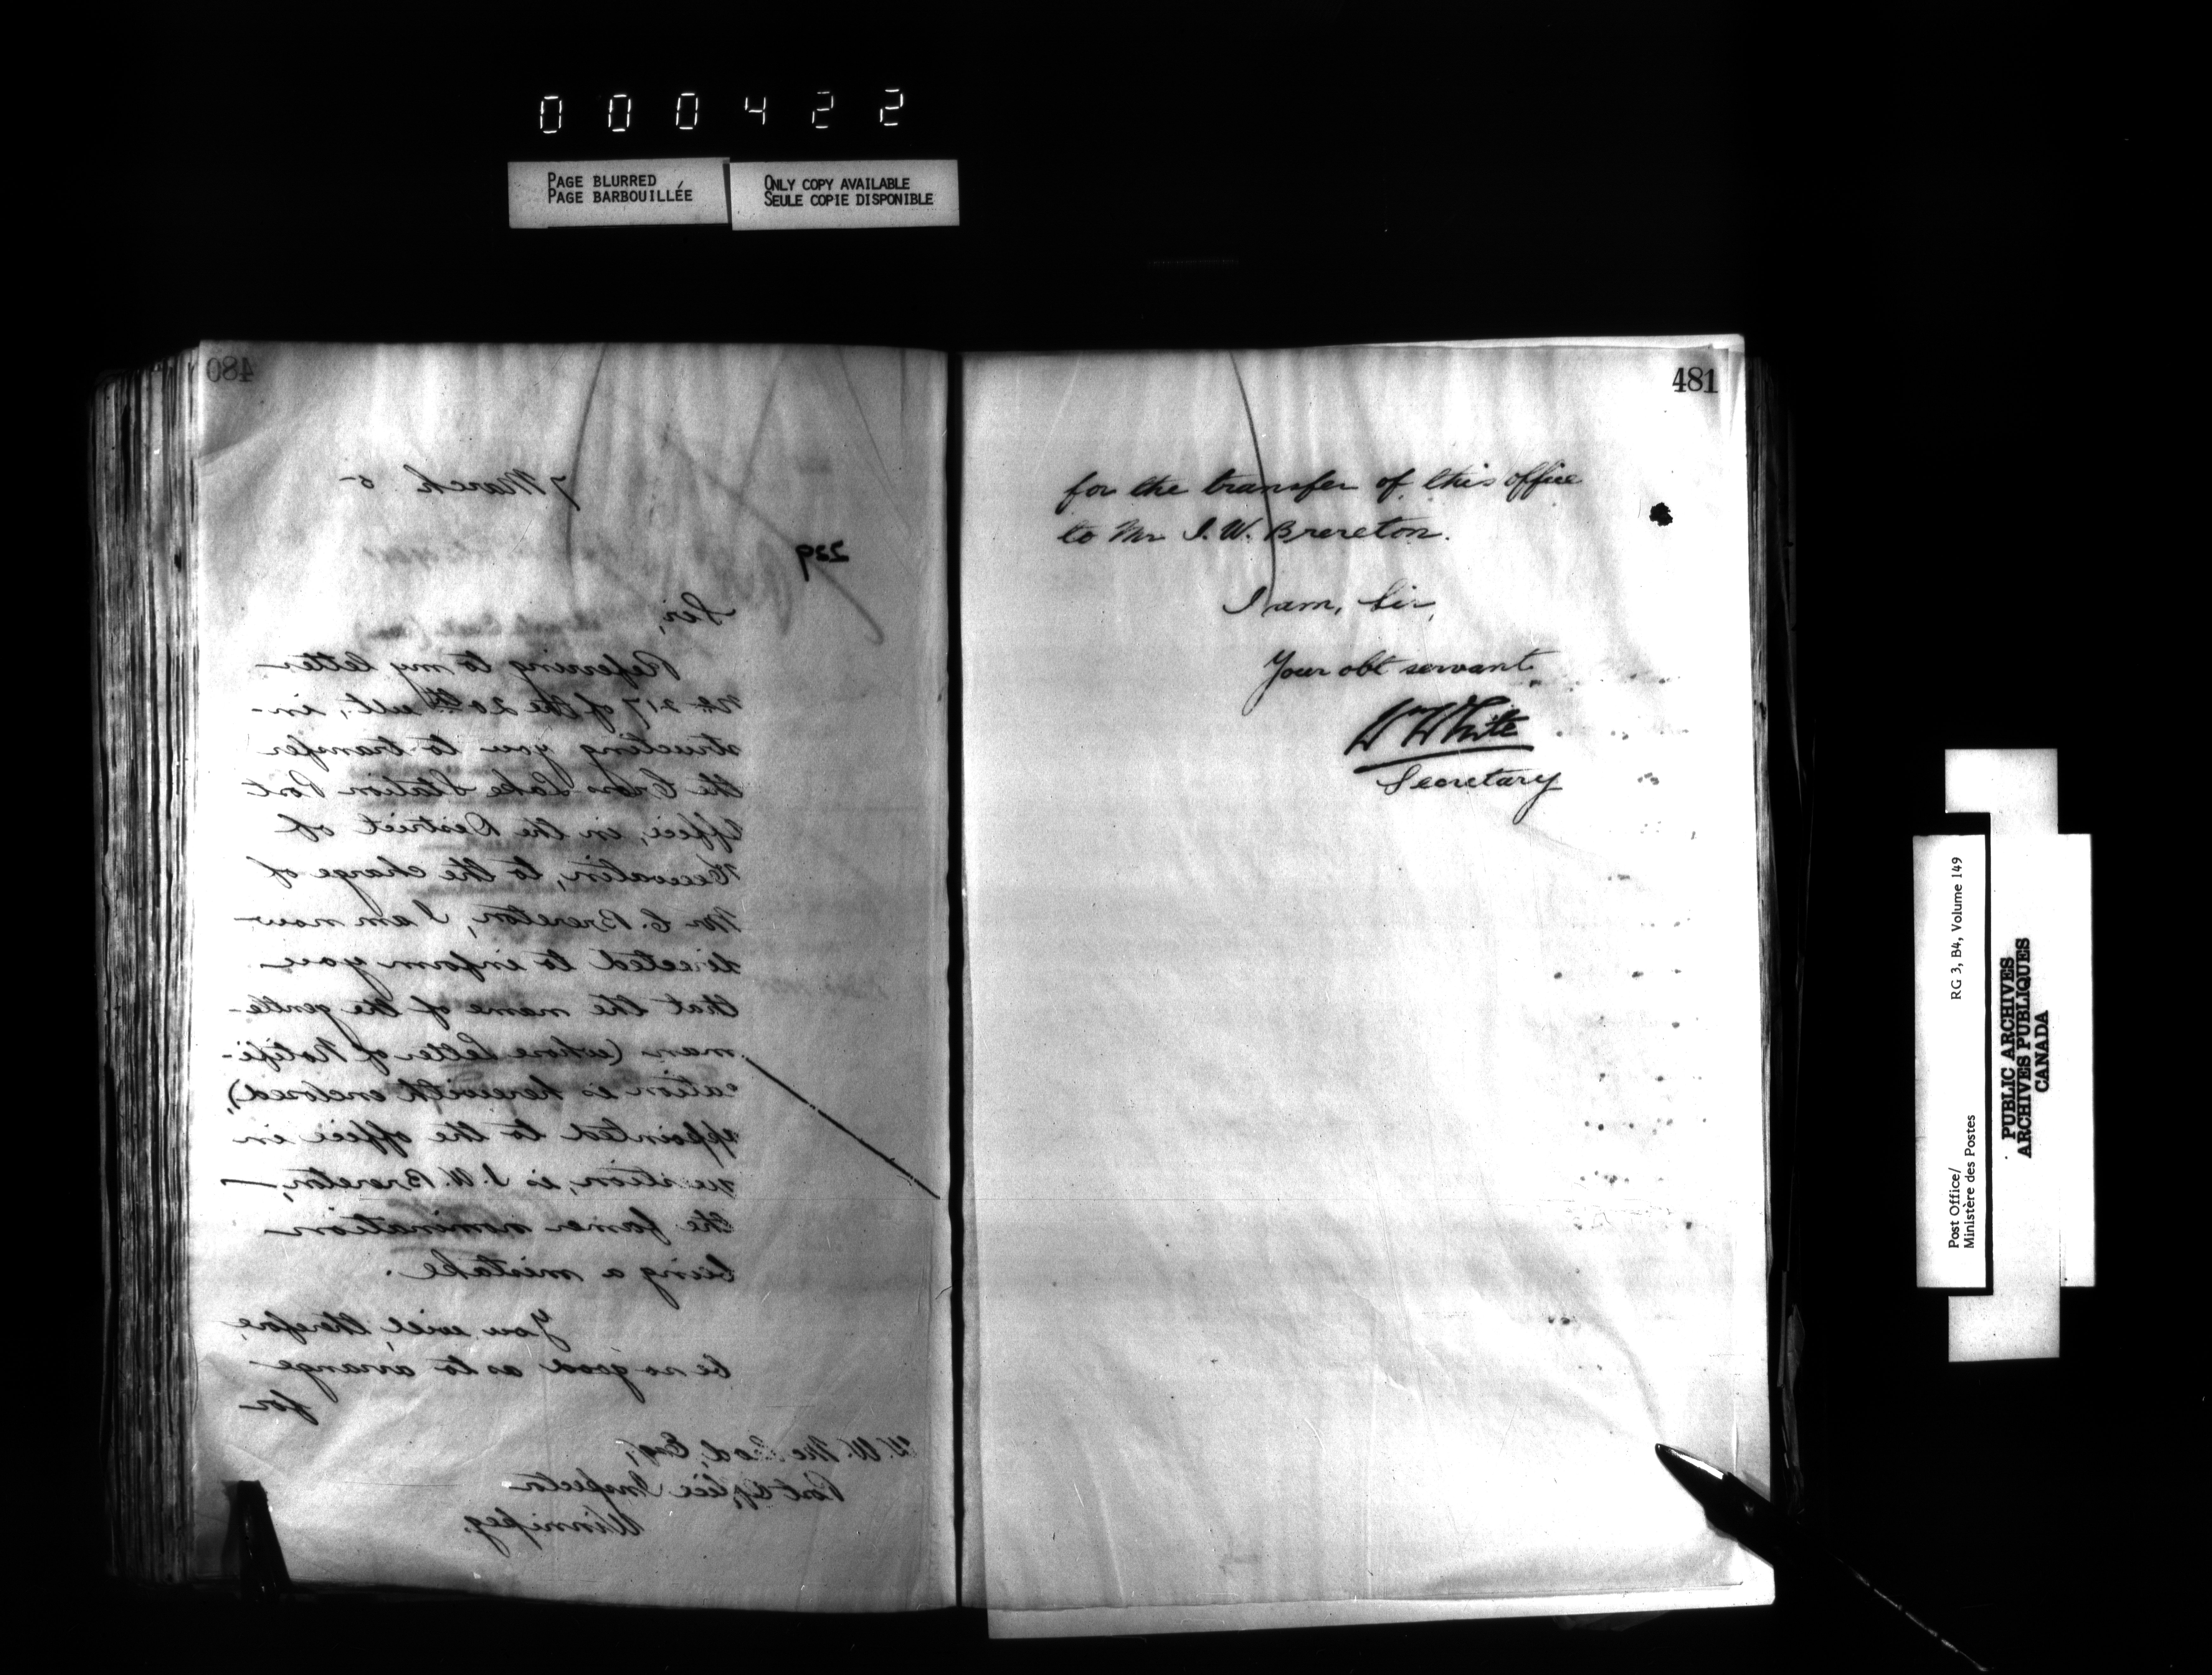 000422
PAGE BLURRED
PAGE BARBOUILLÉE
ONLY COPY AVAILABLE
SEULE COPIE DISPONIBLE
480
7 March 5
229
Sir,
Referring to my letter
No 217 of the 20th ult, in-
structing you to transfer
the Cross Lake Station Post
Office, in the District of
Keewatin, to the charge of
Mr C. Brereton, I am now
directed to inform you
that the name of the gentle-
man (whose Letter of Notifi-
cation is herewith enclosed),
appointed to the office in
question, is I. W. Brereton,—
the former nomination
being a mistake.
You will, therefore,
be so good as to arrange
for
W. W. Mc Esq,
Post Office Inspector
Winnipeg.
481
for the transfer of this office
to Mr I. W. Brereton.
I am, Sir,
Your obt servant
Wm White
Secretary
Post Office/
Ministère des Postes
RG 3, B4, Volume 149
PUBLIC ARCHIVES
ARCHIVES PUBLIQUES
CANADA